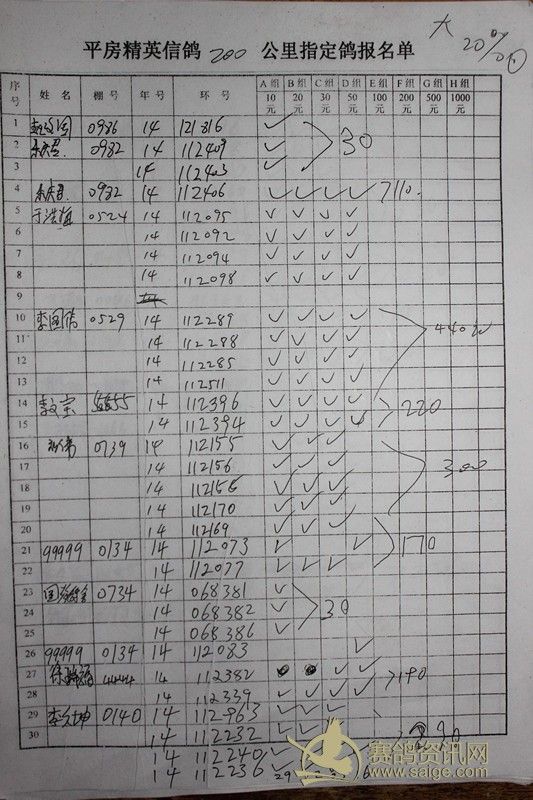 大 20%
平房精英信鸽 200 公里指定鸽报名单
序号 姓名 棚号 年号 环号 A组 10元 B组 20元 C组 30元 D组 50元 E组 100元 F组 200元 G组 500元 H组 1000元
1 0986 14 121816 ✓
2 0982 14 112409 ✓ 30
3 14 112403 ✓
4 0982 14 112406 ✓ ✓ ✓ ✓ 110.
5 于洪 0524 14 112095 ✓ ✓ ✓ ✓
6 14 112092 ✓ ✓ ✓ ✓
7 14 112094 ✓ ✓ ✓ ✓
8 14 112098 ✓ ✓ ✓ ✓
9
10 李国伟 0529 14 112289 ✓ ✓ ✓ ✓ 440
11 14 112288 ✓ ✓ ✓ ✓
12 14 112285 ✓ ✓ ✓ ✓
13 14 112511 ✓ ✓ ✓ ✓
14 李文宝 14 112396 ✓ ✓ ✓ ✓ 220
15 14 112394 ✓ ✓ ✓ ✓
16 0139 14 112155 ✓ ✓ ✓
17 14 112156 ✓ ✓ ✓ 300
18 14 112158 ✓ ✓ ✓
19 14 112170 ✓ ✓ ✓
20 14 112169 ✓ ✓ ✓
21 99999 0134 14 112073 ✓ ✓ 170
22 14 112077 ✓ ✓ ✓
23 0734 14 068381 ✓
24 14 068382 ✓ 30
25 14 068386 ✓
26 99999 0134 14 112083 ✓
27 4444 14 112382 ✓ ✓ 190
28 14 112339 ✓ ✓ ✓ ✓
29 0140 14 112963 ✓ ✓ ✓
30 14 112232 ✓ ✓ ✓
14 112240 ✓
14 112236 ✓ 29
赛鸽资讯网
www.saige.com